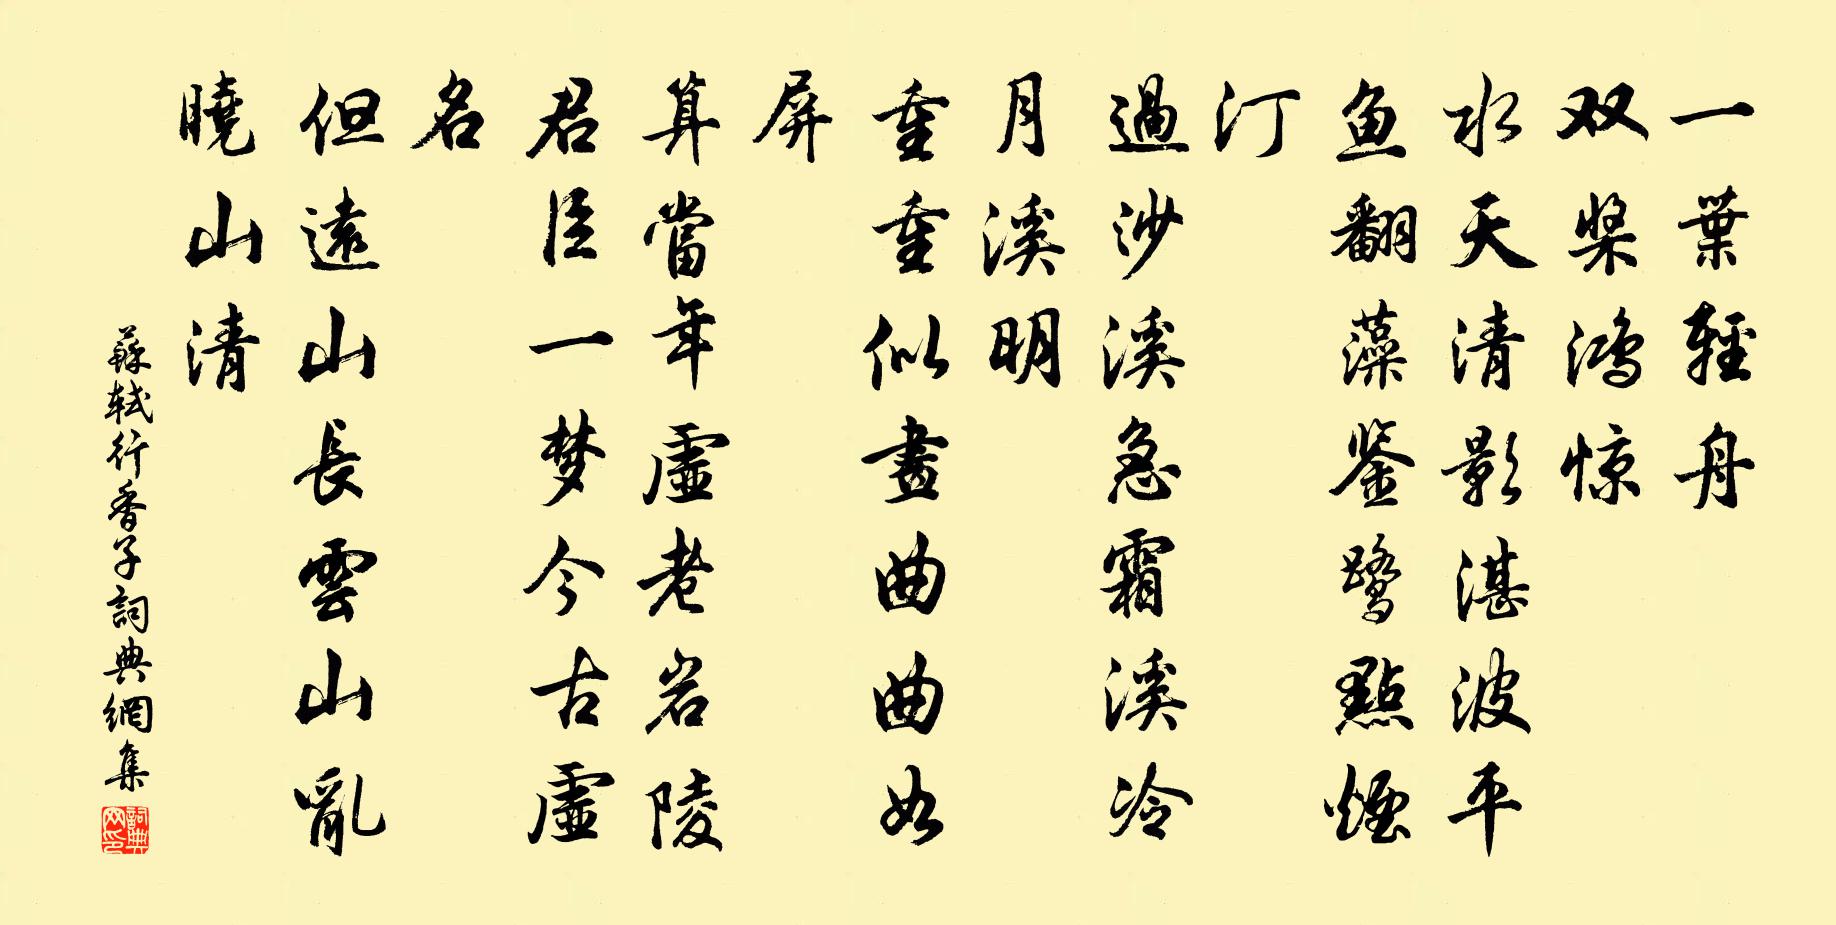 一葉輕舟
双槳鸿惊
水天清影湛波平
鱼翻藻鉴鹭點煙
汀
過沙溪急霜溪冷
月溪明
重重似畫曲曲如
屏
算當年虛老岩陵
君臣一梦今古虛
名
但遠山長雲山亂
曉山清
蘇軾行香子詞典網集
詞典网印